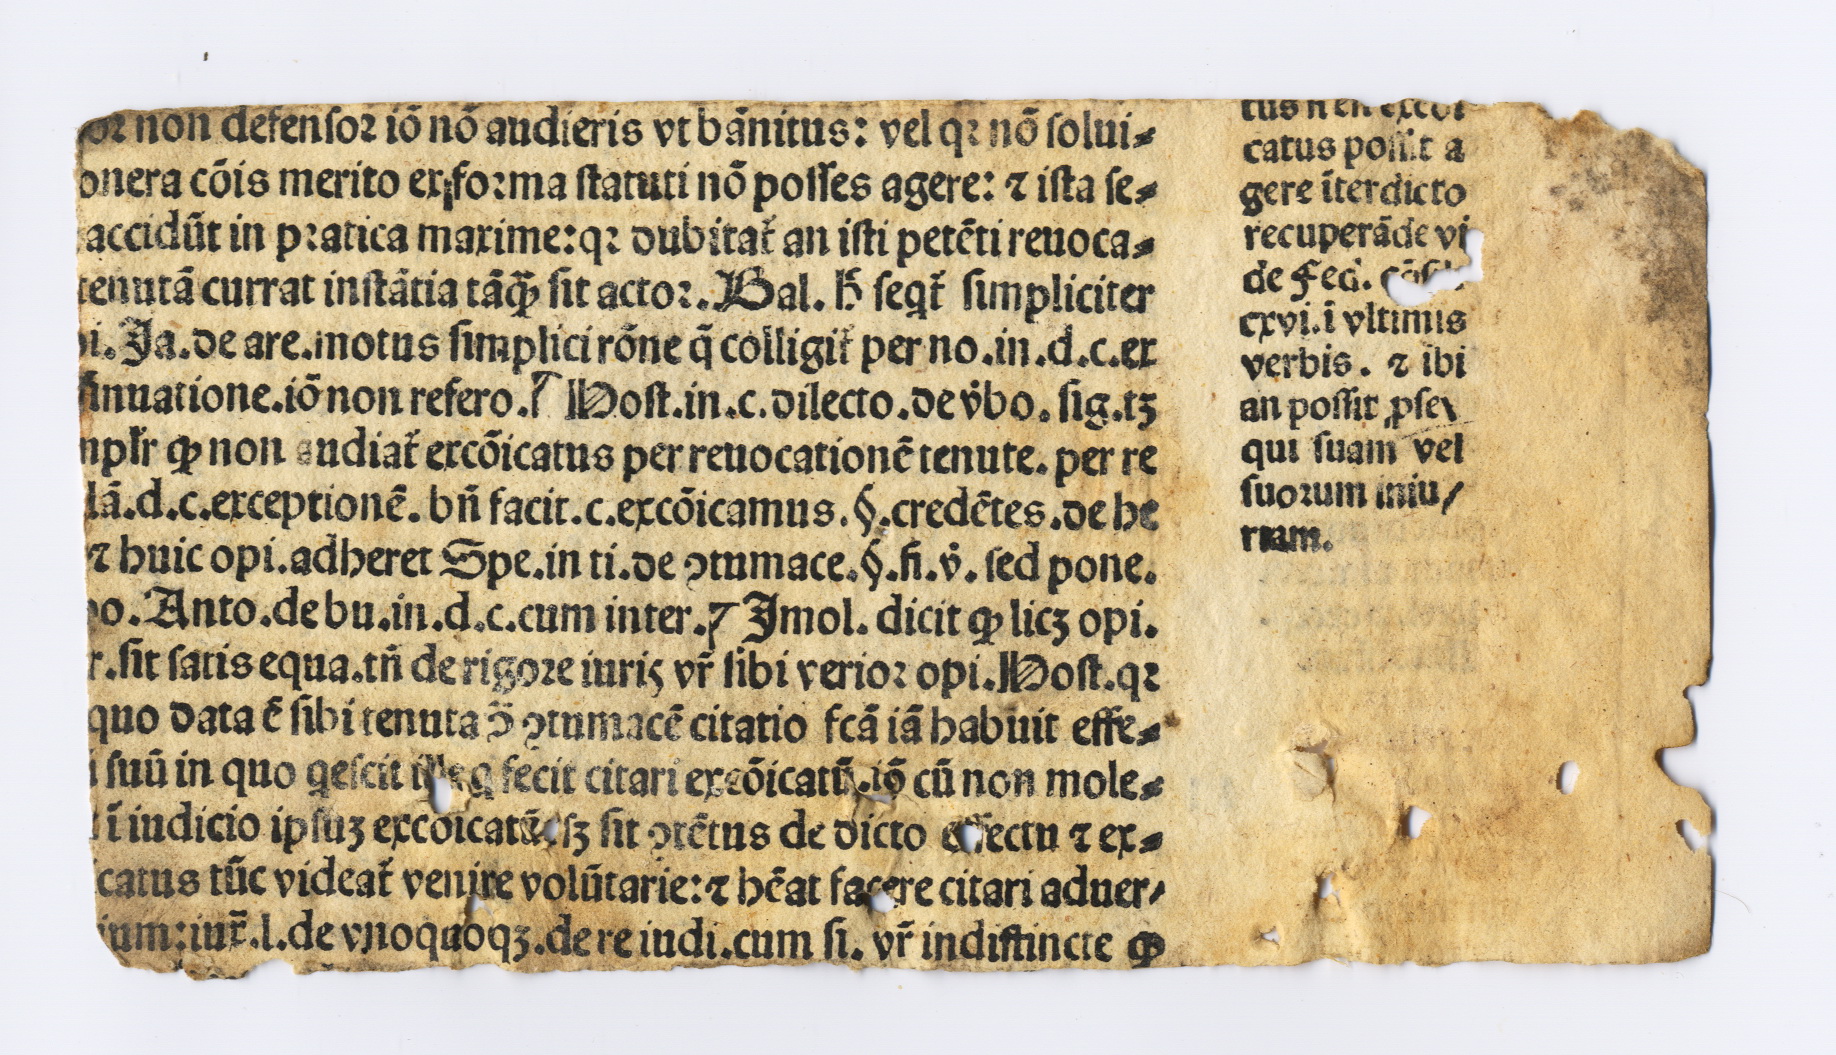 non defensor iō nō audieris vt bānitus: vel qꝛ nō solui⸗
onera cōis merito ex forma statuti nō posses agere: ⁊ ista se⸗
accidūt in pratica maxime: qꝛ dubitat̄ an isti petēti reuoca⸗
tenutā currat instātia tāꝙ̄ sit actor. Bal. h̄ seqt̄ simpliciter
i. Ja. de are. motus simplici rōne q̄ colligit̄ per no. in. d. c. ex
sinuatione. iō non refero. ⁊ Host. in. c. dilecto. de v̄bo. sig. tꝫ
mplr̄ ꝙ non audiat̄ excōicatus per reuocationē tenute. per re
lā. d. c. exceptionē. bn̄ facit. c. excōicamus. §. credētes. de he
⁊ huic opi. adheret Spe. in ti. de ꝯtumace. §. fi. v̄. sed pone.
o. Anto. de bu. in. d. c. cum inter. ⁊ Jmol. dicit ꝙ licꝫ opi.
r. sit satis equa. tn̄ de rigore iuris vr̄ sibi verior opi. Host. qꝛ
quo data ē sibi tenuta ꝯtumacē citatio fcā iā habuit effe⸗
suū in quo qescit q fecit citari excōicatū. iō cū non mole⸗
ī iudicio ipsuꝫ excōicatū sꝫ sit ꝯtētus de dicto effectu ⁊ ex⸗
catus tūc videat̄ venire volūtarie: ⁊ hēat facere citari aduer/
ium: iux̄. l. de vnoquoqꝫ. de re iudi. cum si. vr̄ indistincte ꝙ
catus possit a
gere īterdicto
recuperāde vi
de Fed.
cxvi. ī vltimis
verbis. ⁊ ibi
an possit ꝓse
qui suam vel
suorum iniu/
riam.